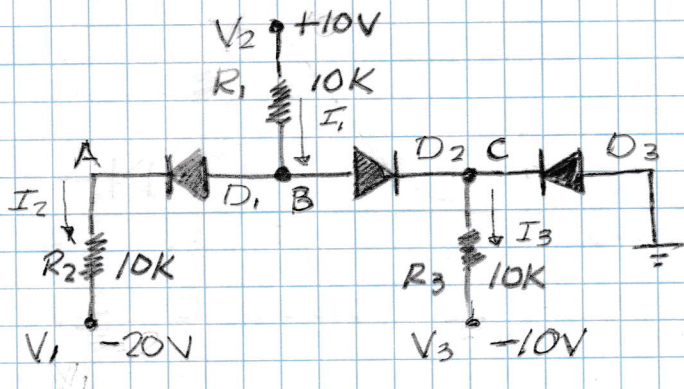 V2 +10V
R1 10K
I1
A
D1
B
D2 C D3
I2
R2 10K
I3
R3 10K
V1 -20V
V3 -10V